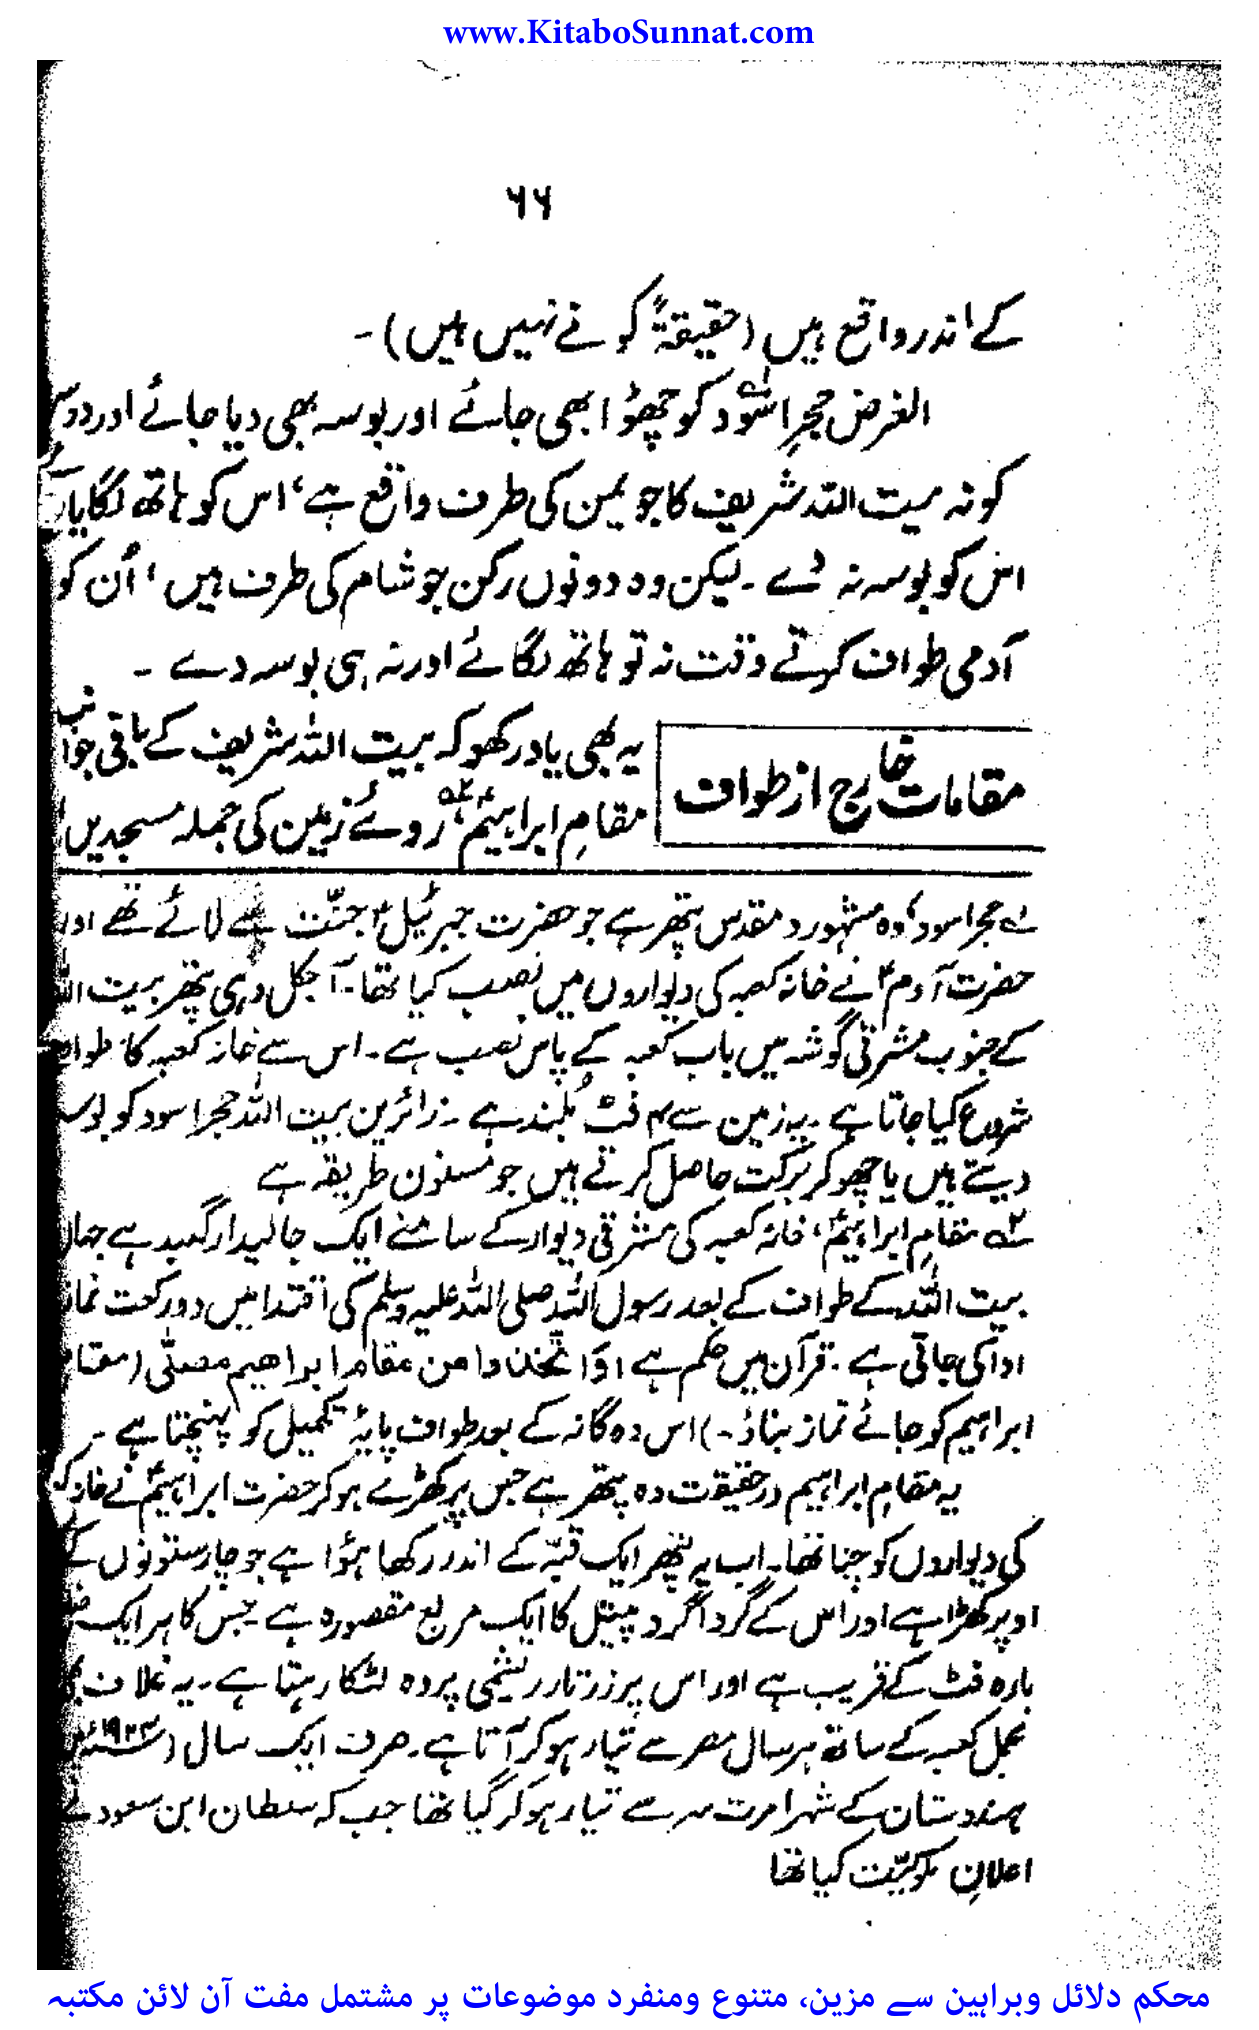 www.KitaboSunnat.com
۶۶
کے اندر واقع ہیں (حقیقۃً کونے نہیں ہیں)۔
الغرض حجرِ اسود۱ کو چھؤا بھی جائے اور بوسہ بھی دیا جائے اور
کونہ بیت اللہ شریف کا جو یمن کی طرف واقع ہے، اس کو ہاتھ لگایا
اس کو بوسہ نہ دے۔ لیکن وہ دونوں رکن جو شام کی طرف ہیں، اُن کو
آدمی طواف کرتے وقت نہ تو ہاتھ لگائے اور نہ ہی بوسہ دے۔
مقامات خارج از طواف
یہ بھی یاد رکھو کہ بیت اللہ شریف کے باقی جوانب
مقامِ ابراہیمؑ۲ روئے زمین کی جملہ مسجدیں
۱ حجر اسود، وہ مشہور و مقدس پتھر ہے جو حضرت جبرئیلؑ جنّت سے لائے تھے اور
حضرت آدمؑ نے خانہ کعبہ کی دیواروں میں نصب کیا تھا۔ آجکل وہی پتھر بیت اللہ
کے جنوب مشرقی گوشہ میں باب کعبہ کے پاس نصب ہے۔ اس سے خانہ کعبہ کا طواف
شروع کیا جاتا ہے۔ یہ زمین سے ۴ فٹ بُلند ہے۔ زائرین بیت اللہ حجر اسود کو بوسہ
دیتے ہیں یا چھو کر برکت حاصل کرتے ہیں جو مسنون طریقہ ہے
۲ مقامِ ابراہیمؑ، خانہ کعبہ کی مشرقی دیوار کے سامنے ایک جالیدار گنبد ہے جہاں
بیت اللہ کے طواف کے بعد رسول اللہ صلی اللہ علیہ وسلم کی اقتدا میں دو رکعت نماز
ادا کی جاتی ہے۔ قرآن میں حکم ہے (وَاتخذوا من مقام ابراھیم مصلّٰی (مقام
ابراہیم کو جائے نماز بناؤ۔) اس دوگانہ کے بعد طواف پایۂ تکمیل کو پہنچتا ہے۔
یہ مقامِ ابراہیم درحقیقت وہ پتھر ہے جس پر کھڑے ہو کر حضرت ابراہیمؑ نے خانہ کعبہ
کی دیواروں کو چنا تھا۔ اب یہ پتھر ایک قبّہ کے اندر رکھا ہؤا ہے جو چار ستونوں کے
اوپر کھڑا ہے اور اس کے گرداگرد پیتل کا ایک مربع مقصورہ ہے۔ جس کا ہر ایک
بارہ فٹ کے قریب ہے اور اس پر زرتار ریشمی پردہ لٹکا رہتا ہے۔ یہ غلاف بھی
محمل کعبہ کے ساتھ ہر سال مصر سے تیار ہو کر آتا ہے۔ صرف ایک سال (
ہندوستان کے شہر امرت سر سے تیار ہو کر گیا تھا جب کہ سلطان ابن سعود نے
اعلانِ ملوکیّت کیا تھا
محکم دلائل وبراہین سے مزین، متنوع ومنفرد موضوعات پر مشتمل مفت آن لائن مکتبہ